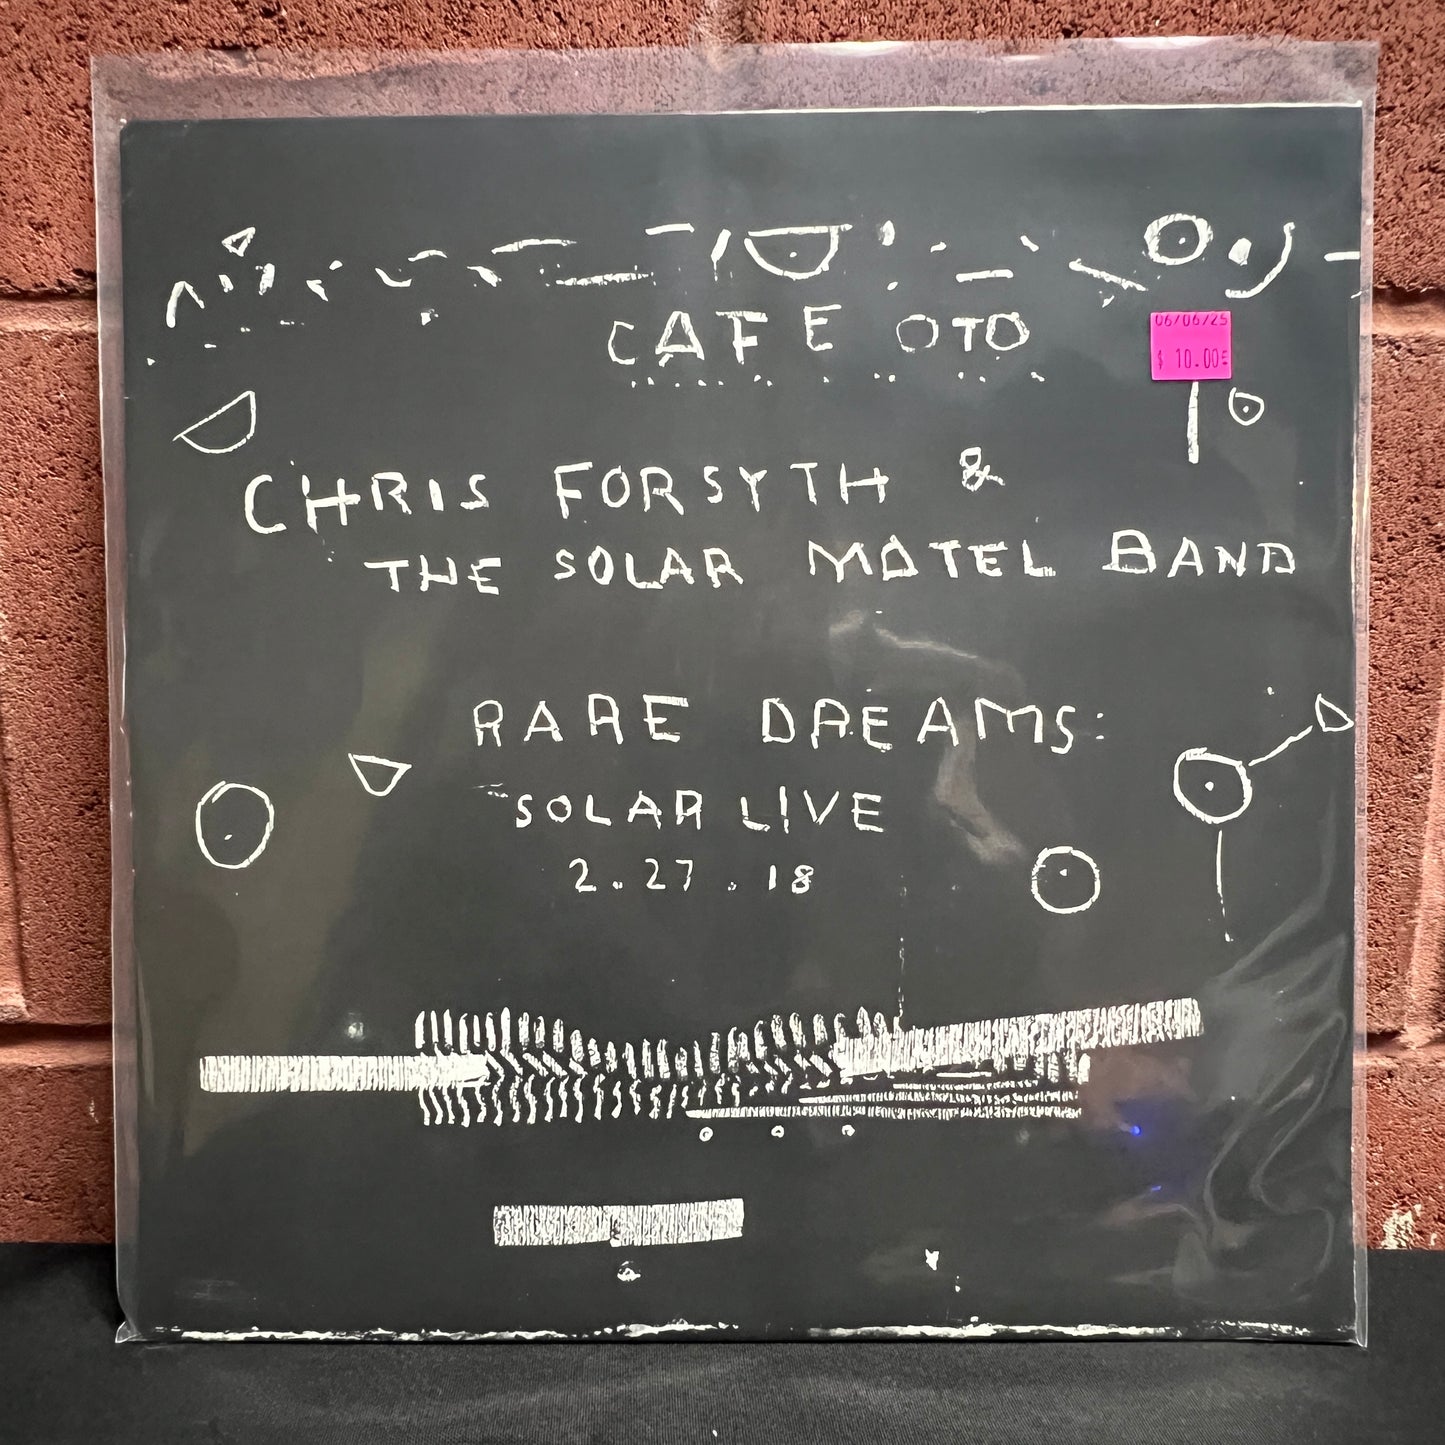 CAFE OTO
06/06/25
$ 10.00
CHRIS FORSYTH &
THE SOLAR MOTEL BAND
RARE DREAMS:
SOLAR LIVE
2.27.18